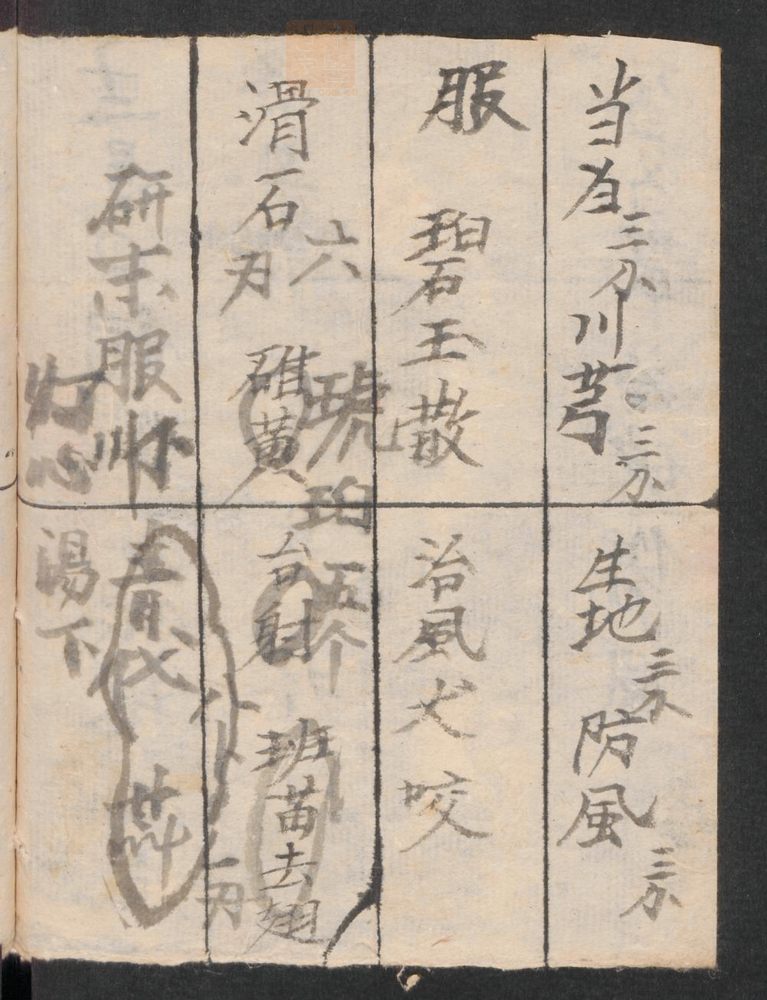 当归三分川芎三分 生地三分 防風三分
服 碧玉散 治風犬咬
六 琥珀五个
滑石刃 碓黄 台射 班苗去翅
八分 一刃
研末服 青代
灯心湯下